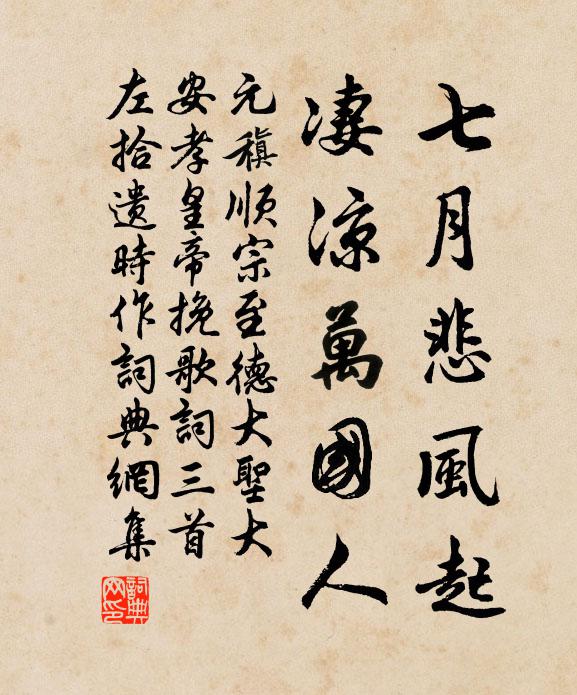 七月悲風起
凄凉萬國人
元稹順宗至德大聖大
安孝皇帝挽歌詞三首
左拾遗時作詞典網集
詞典網印